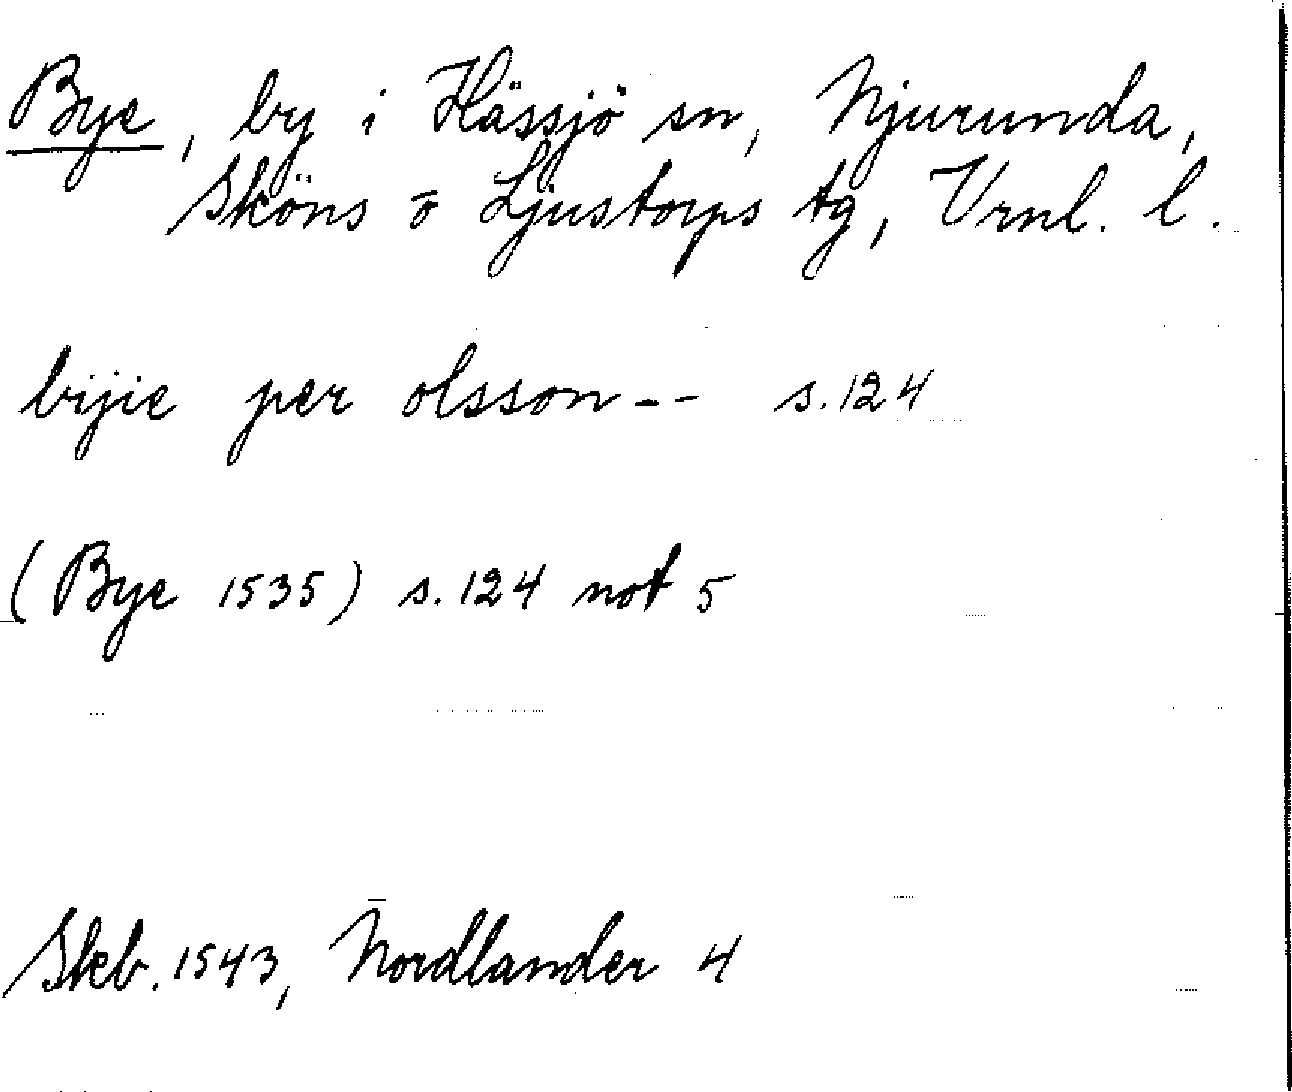 Bye, by i Hässjö sn, Njurunda,
Sköns o Ljustorps tg, Vrnl. l.
bijie per olsson-- s.124
(Bye 1535) s.124 not 5
Skb. 1543, Nordlander 4